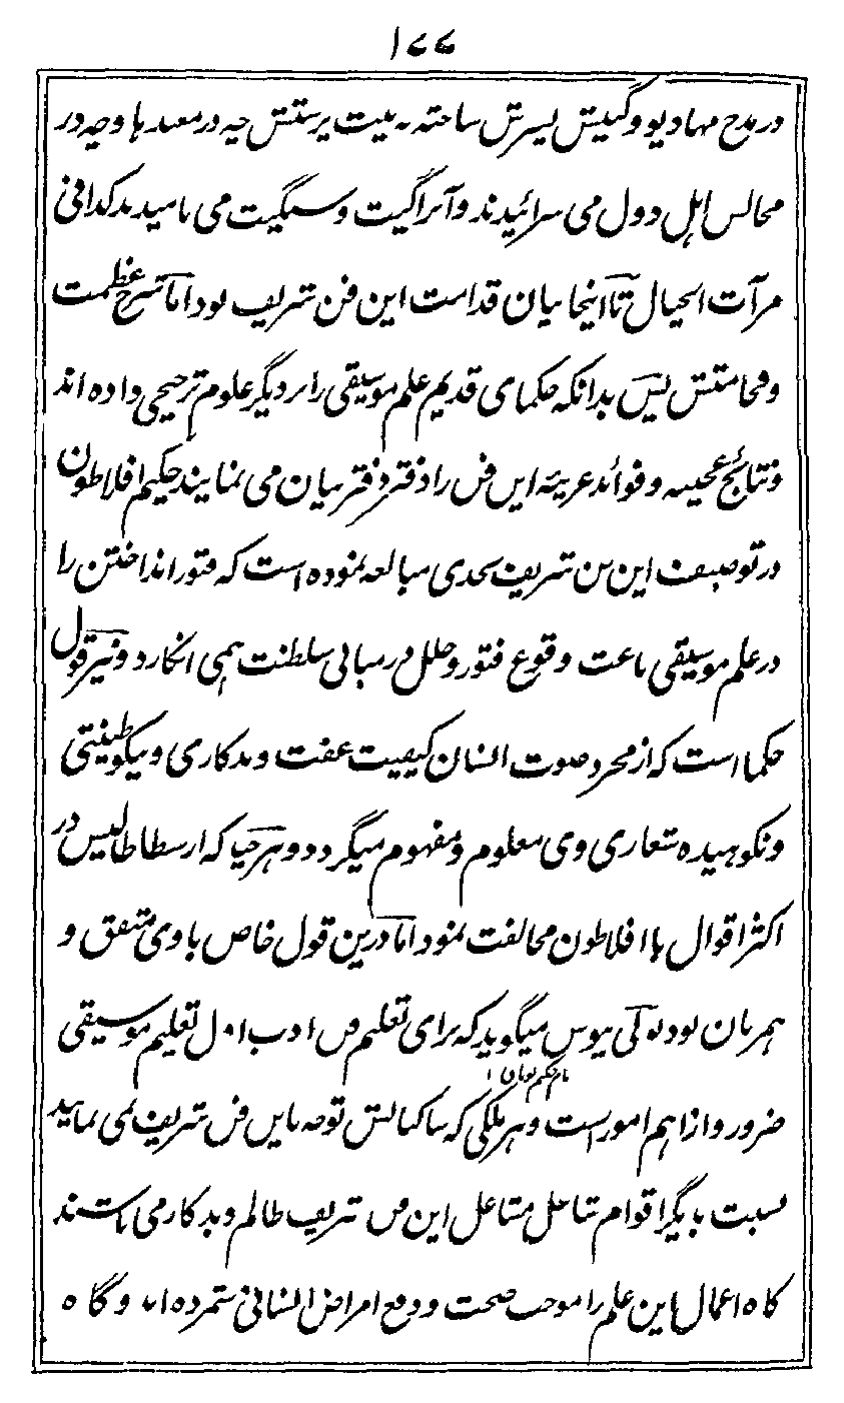 ۱۷۷
در مدح مهادیو و گنیش پسرش ساخته به نیت پرستش چه در معبدها و چه در
مجالس اهل دول می سرائیدند و آنرا گیت و سنگیت می نامیدند کذا فی
مرآت الخیال تا اینجا بیان قدامت این فن شریف بود اما شرح عظمت
و فخامتش پس بدانکه حکمای قدیم علم موسیقی را بر دیگر علوم ترجیحی داده اند
و نتائج عجیبه و فوائد غریبه این فن را دفتر دفتر بیان می نمایند حکیم افلاطون
در توصیف این فن شریف بحدی مبالغه نموده است که فتور انداختن را
در علم موسیقی باعث وقوع فتور و خلل در مبانی سلطنت همی انگارد و نیز قول
حکما است که از مجرد صوت انسان کیفیت عفت و بدکاری و نیکو طینتی
و نکوهیده شعاری وی معلوم و مفهوم میگردد و هر چا که ارسطاطالیس در
اکثر اقوال با افلاطون مخالفت نمود اما درین قول خاص با وی متفق و
همزبان بوده میگوید که برای تعلیم فن ادب اول تعلیم موسیقی
نام حکیم یونان
ضرور و از اهم امور است و هر ملکی که ساکنانش توجه باین فن شریف نمی نمایند
نسبت بدیگر اقوام شاغل مشاغل این فن شریف ظالم و بدکار می باشند
گاه اعمال این علم را موجب صحت و دفع امراض انسانی شمرده اند و گاه